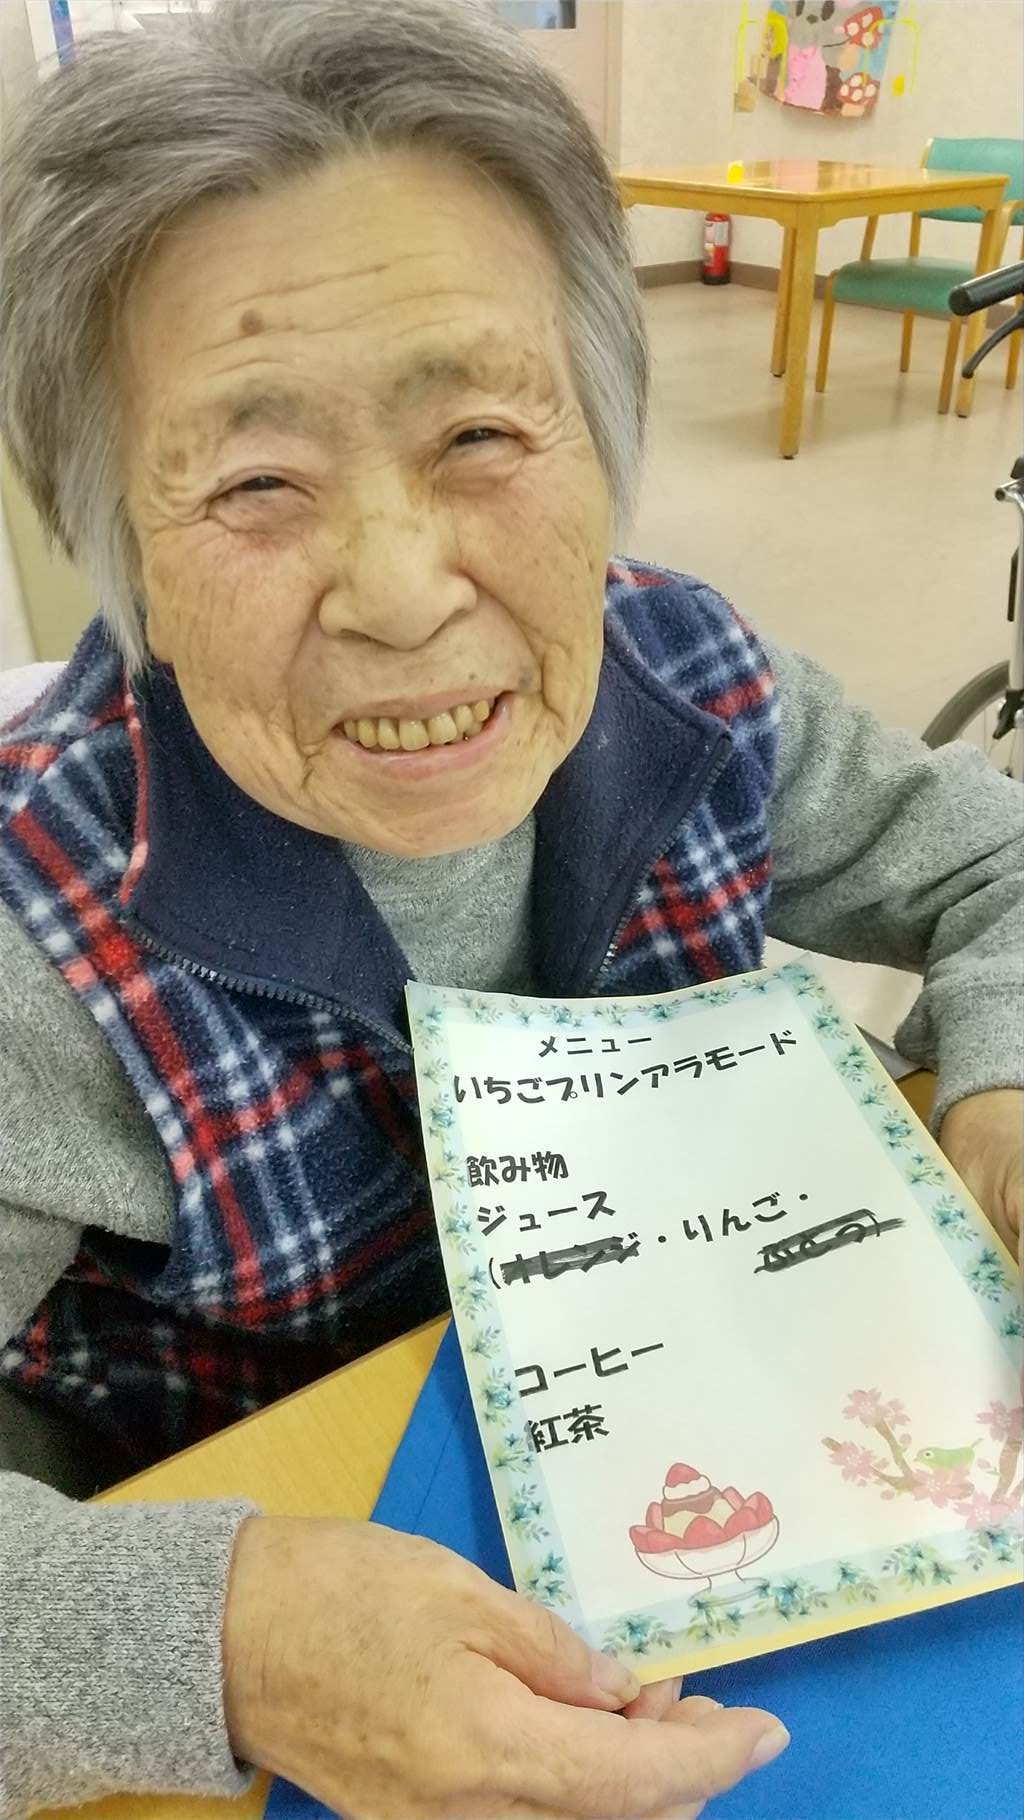 メニュー
いちごプリンアラモード
飲み物
ジュース
(オレンジ・りんご・
ぶどう)
コーヒー
紅茶